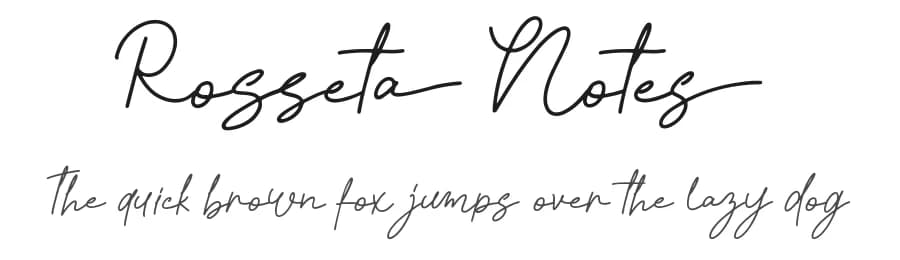 Rosseta Notes
The quick brown fox jumps over the lazy dog